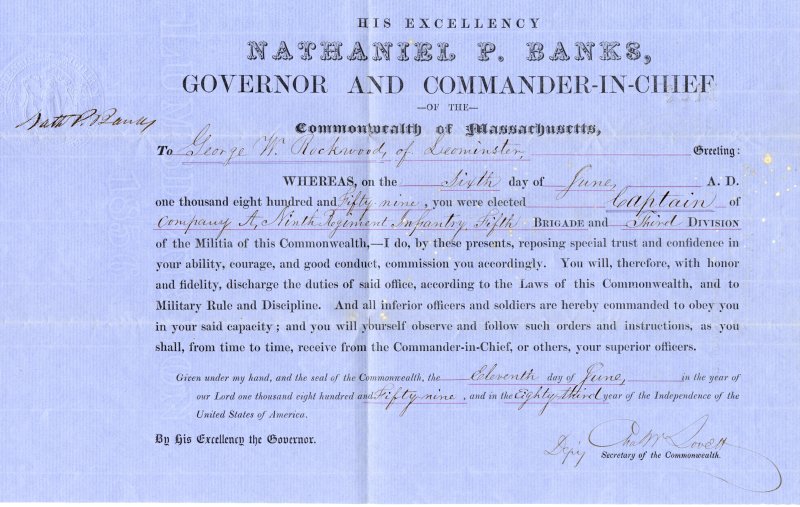 HIS EXCELLENCY
NATHANIEL P. BANKS,
GOVERNOR AND COMMANDER-IN-CHIEF
—OF THE—
Nath P. Banks
Commonwealth of Massachusetts,
To George W. Rockwood, of Leominster, Greeting:
WHEREAS, on the Sixth day of June, A. D.
one thousand eight hundred and Fifty-nine, you were elected Captain of
Company A, Ninth Regiment Infantry, Fifth BRIGADE and Third DIVISION
of the Militia of this Commonwealth,—I do, by these presents, reposing special trust and confidence in
your ability, courage, and good conduct, commission you accordingly. You will, therefore, with honor
and fidelity, discharge the duties of said office, according to the Laws of this Commonwealth, and to
Military Rule and Discipline. And all inferior officers and soldiers are hereby commanded to obey you
in your said capacity; and you will yourself observe and follow such orders and instructions, as you
shall, from time to time, receive from the Commander-in-Chief, or others, your superior officers.
Given under my hand, and the seal of the Commonwealth, the Eleventh day of June, in the year of
our Lord one thousand eight hundred and Fifty nine, and in the Eighty third year of the Independence of the
United States of America.
By His Excellency the Governor.
Depy Chas W Lovett
Secretary of the Commonwealth.